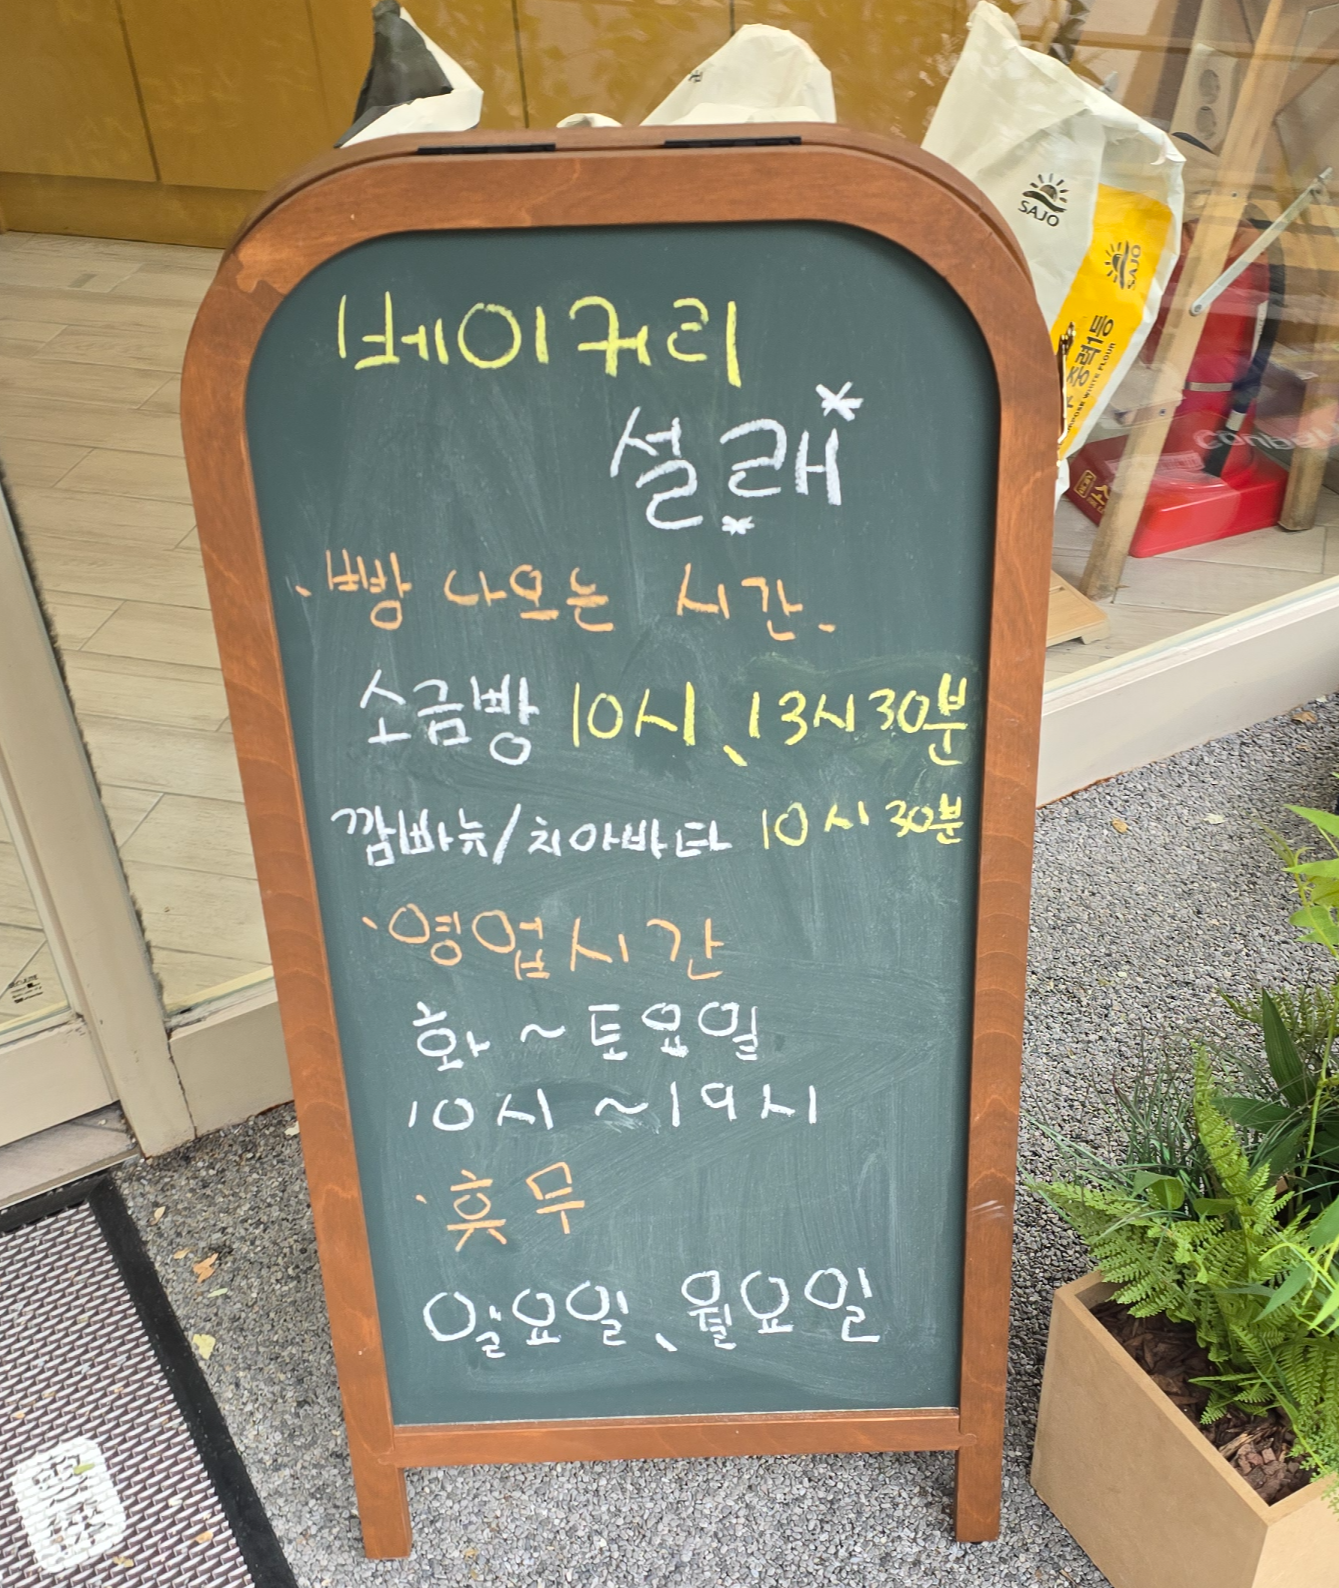 베이커리
설래
· 빵 나오는 시간.
소금빵 10시、13시30분
깜빠뉴/치아바타 10시 30분
· 영업시간
화 ~ 토요일
10시 ~ 19시
· 휴무
일요일、월요일
SAJO
SAJO